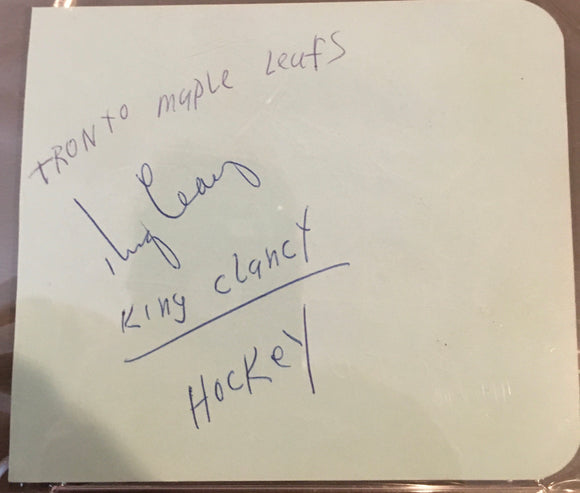 TRONTO MAPLE LEAFS
King Clancy
KING CLANCY
HOCKEY